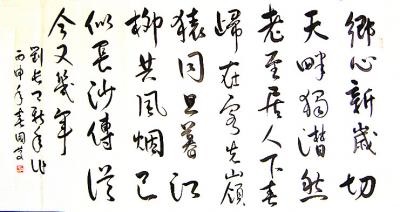 鄉心新歲切
天畔獨潸然
老至居人下春
歸在客先嶺
猿同旦暮江
柳共風烟已
似長沙傅從
今又幾年
劉長卿新年作
丙申年春